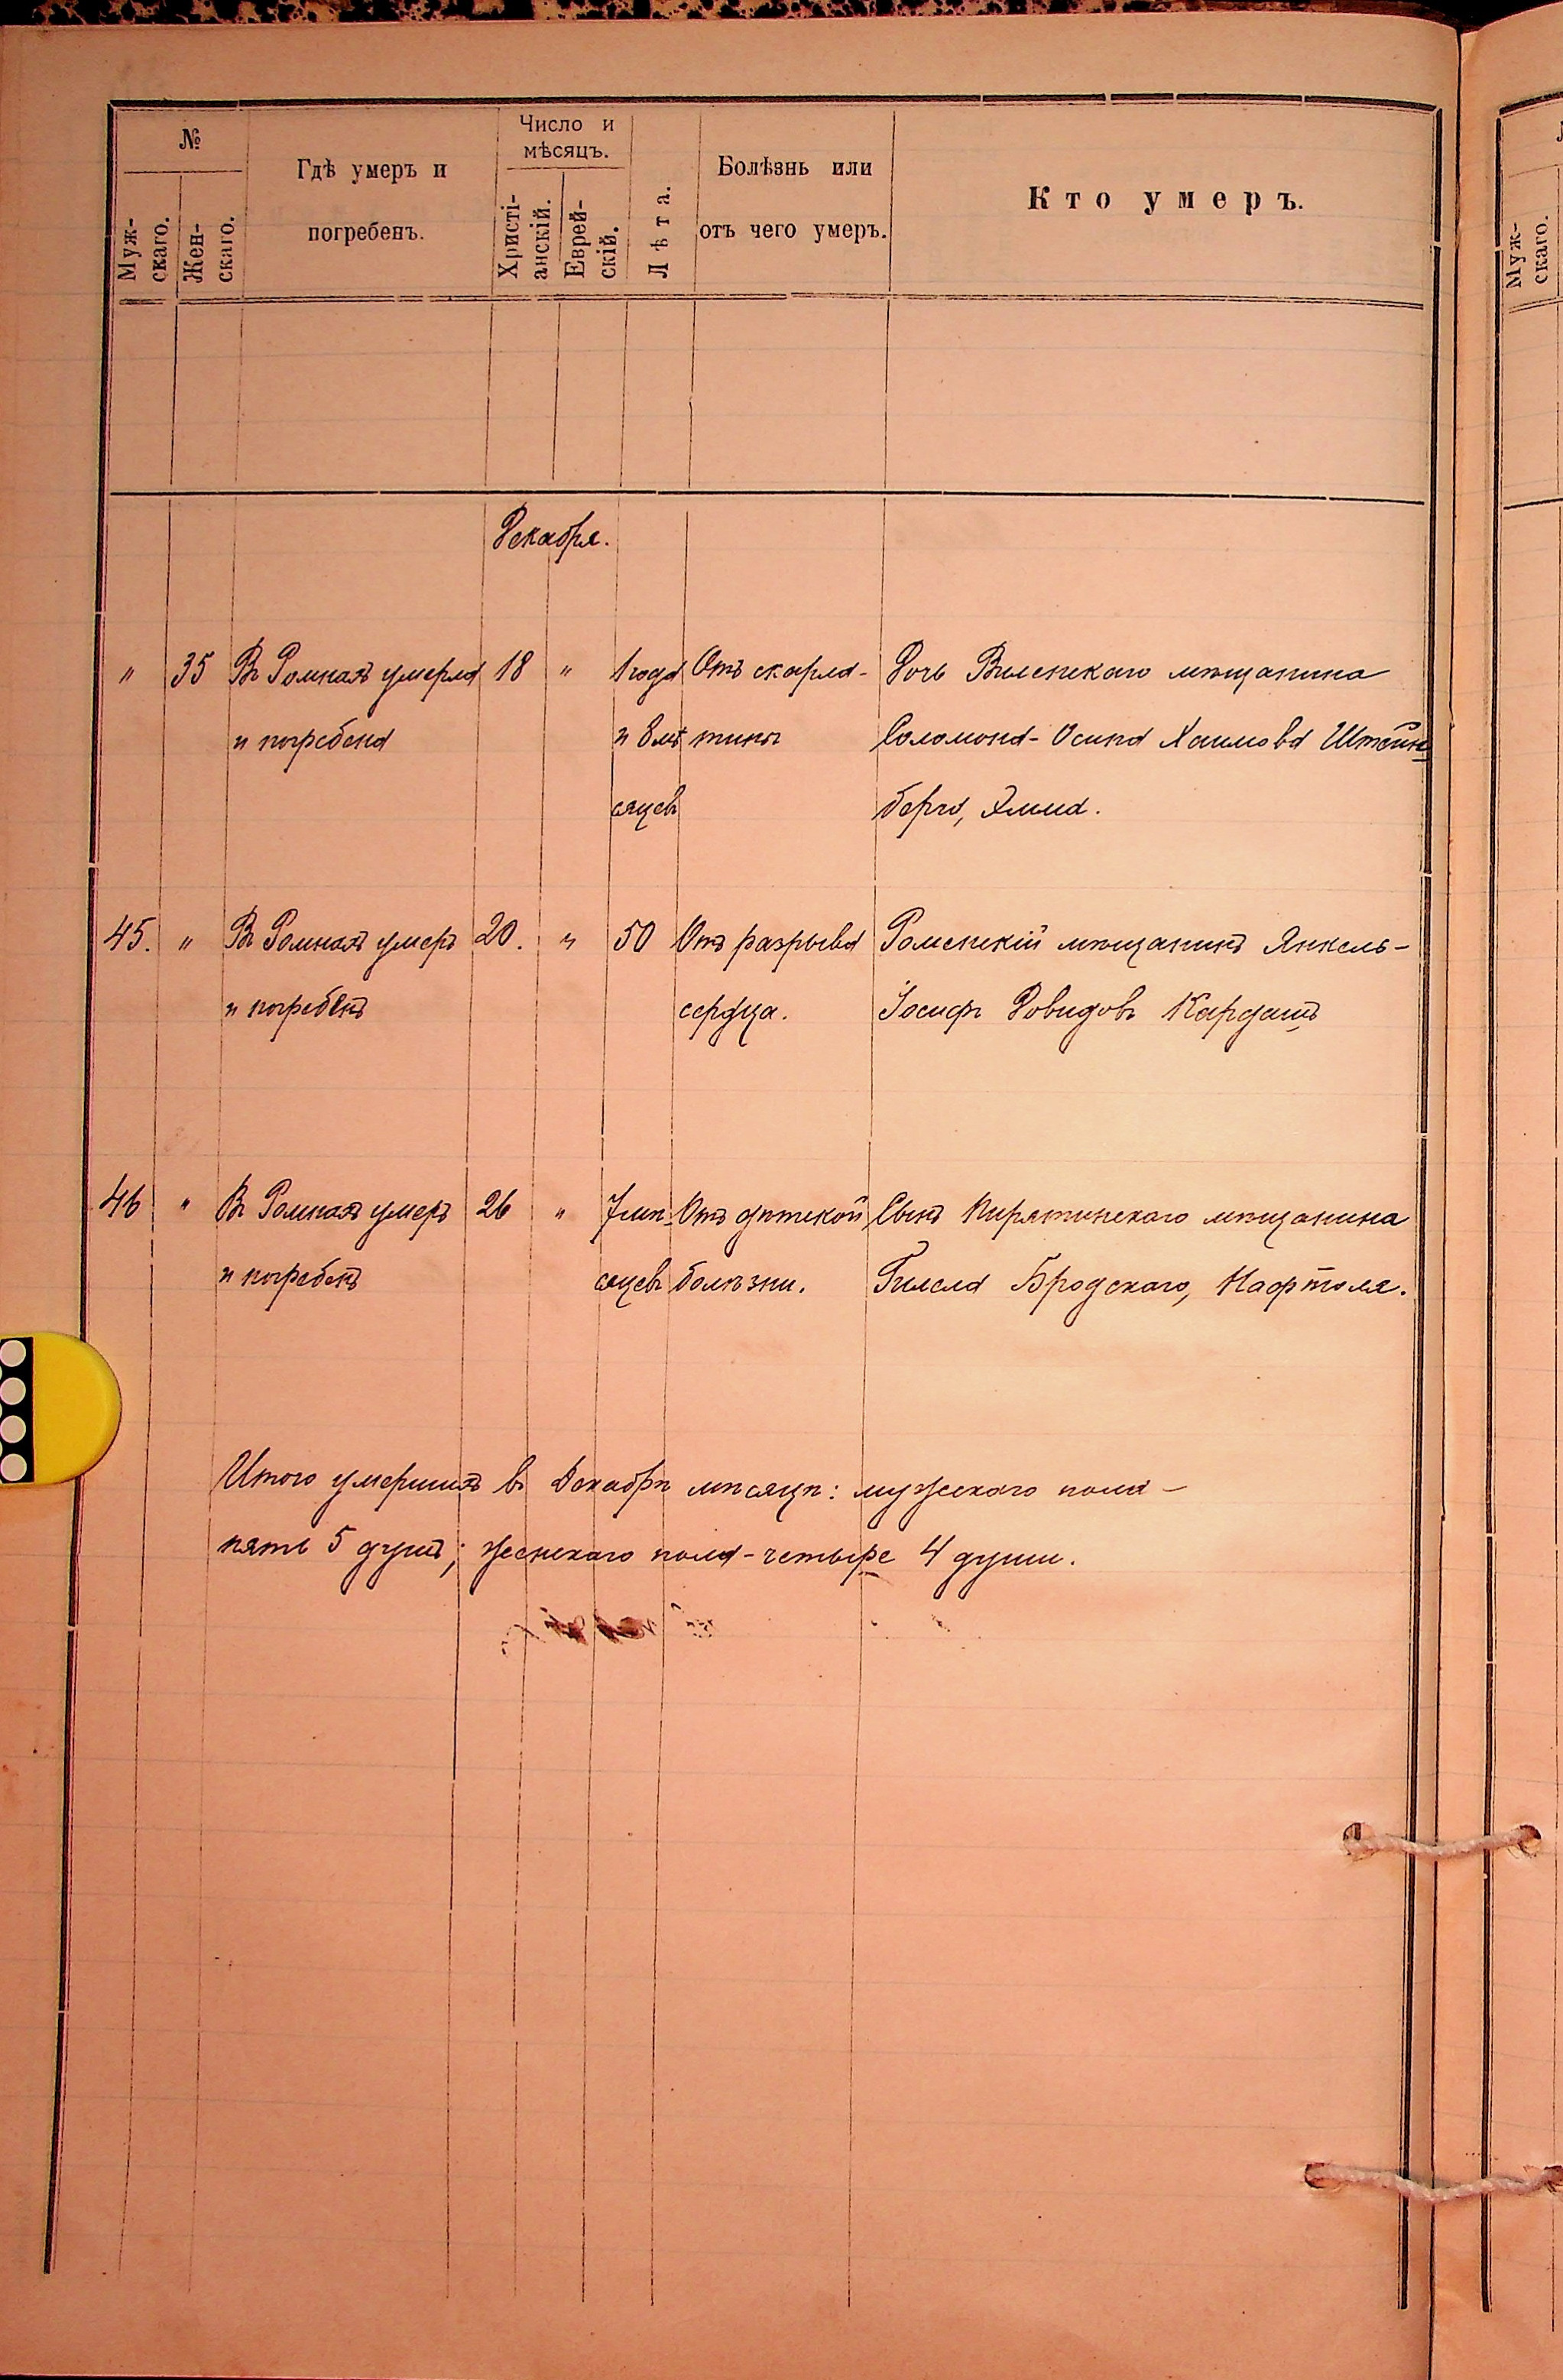 №
Муж-
скаго.
Жен-
скаго.
Гдѣ умеръ и
погребенъ.
Число и
мѣсяцъ.
Христі-
анскій.
Еврей-
скій.
Лѣта.
Болѣзнь или
отъ чего умеръ.
Кто умеръ.
Декабря.
" 35 Въ Ромнахъ умерла 18 " 1 года Отъ скарла- Дочь Виленскаго мѣщанина
и погребена и 8 мѣ тины Соломона-Осипа Хаимова Штейн
сяцевъ берга, Эмма.
45. " Въ Ромнахъ умеръ 20. " 50 Отъ разрыва Роменскій мѣщанинъ Янкель-
и погребенъ сердца. Іосифъ Довидовъ Кардашъ
46 " Въ Ромнахъ умеръ 26 " 7 мѣ- Отъ дѣтской Сынъ Пирятинскаго мѣщанина
и погребенъ сяцевъ болѣзни. Гилела Бродскаго, Нафтоля.
Итого умершихъ въ Декабрѣ мѣсяцѣ: мужескаго пола -
пять 5 душъ; женскаго пола - четыре 4 души.
Муж-
скаго.